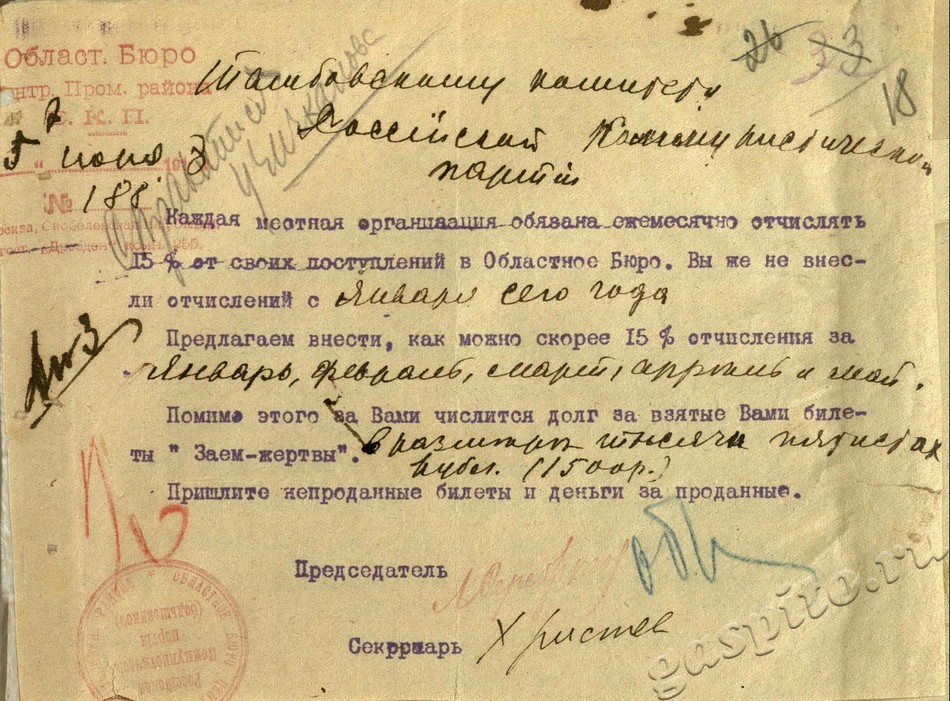 Област. Бюро
Центр. Пром. района
Р. К. П.
5 июня 191
№ 188
26 33
18
Тамбовскому комитету
Россійской Коммунистической
партіи
Каждая местная организация обязана ежемесячно отчислять
15 % от своих поступлений в Областное Бюро. Вы же не внес-
ли отчислений с Января сего года
Предлагаем внести, как можно скорее 15 % отчисления за
Январь, февраль, март, апрель и май.
Помимо этого за Вами числится долг за взятые Вами биле-
ты " Заем-жертвы". в размере тысячи пятисот
рубл. (1500р.)
Пришлите непроданные билеты и деньги за проданные.
Председатель
Секррарь Христев
ОБЛАСТНОЕ БЮРО
Российская
Коммунистическ
партия
(большевиков)
gaspito.ru